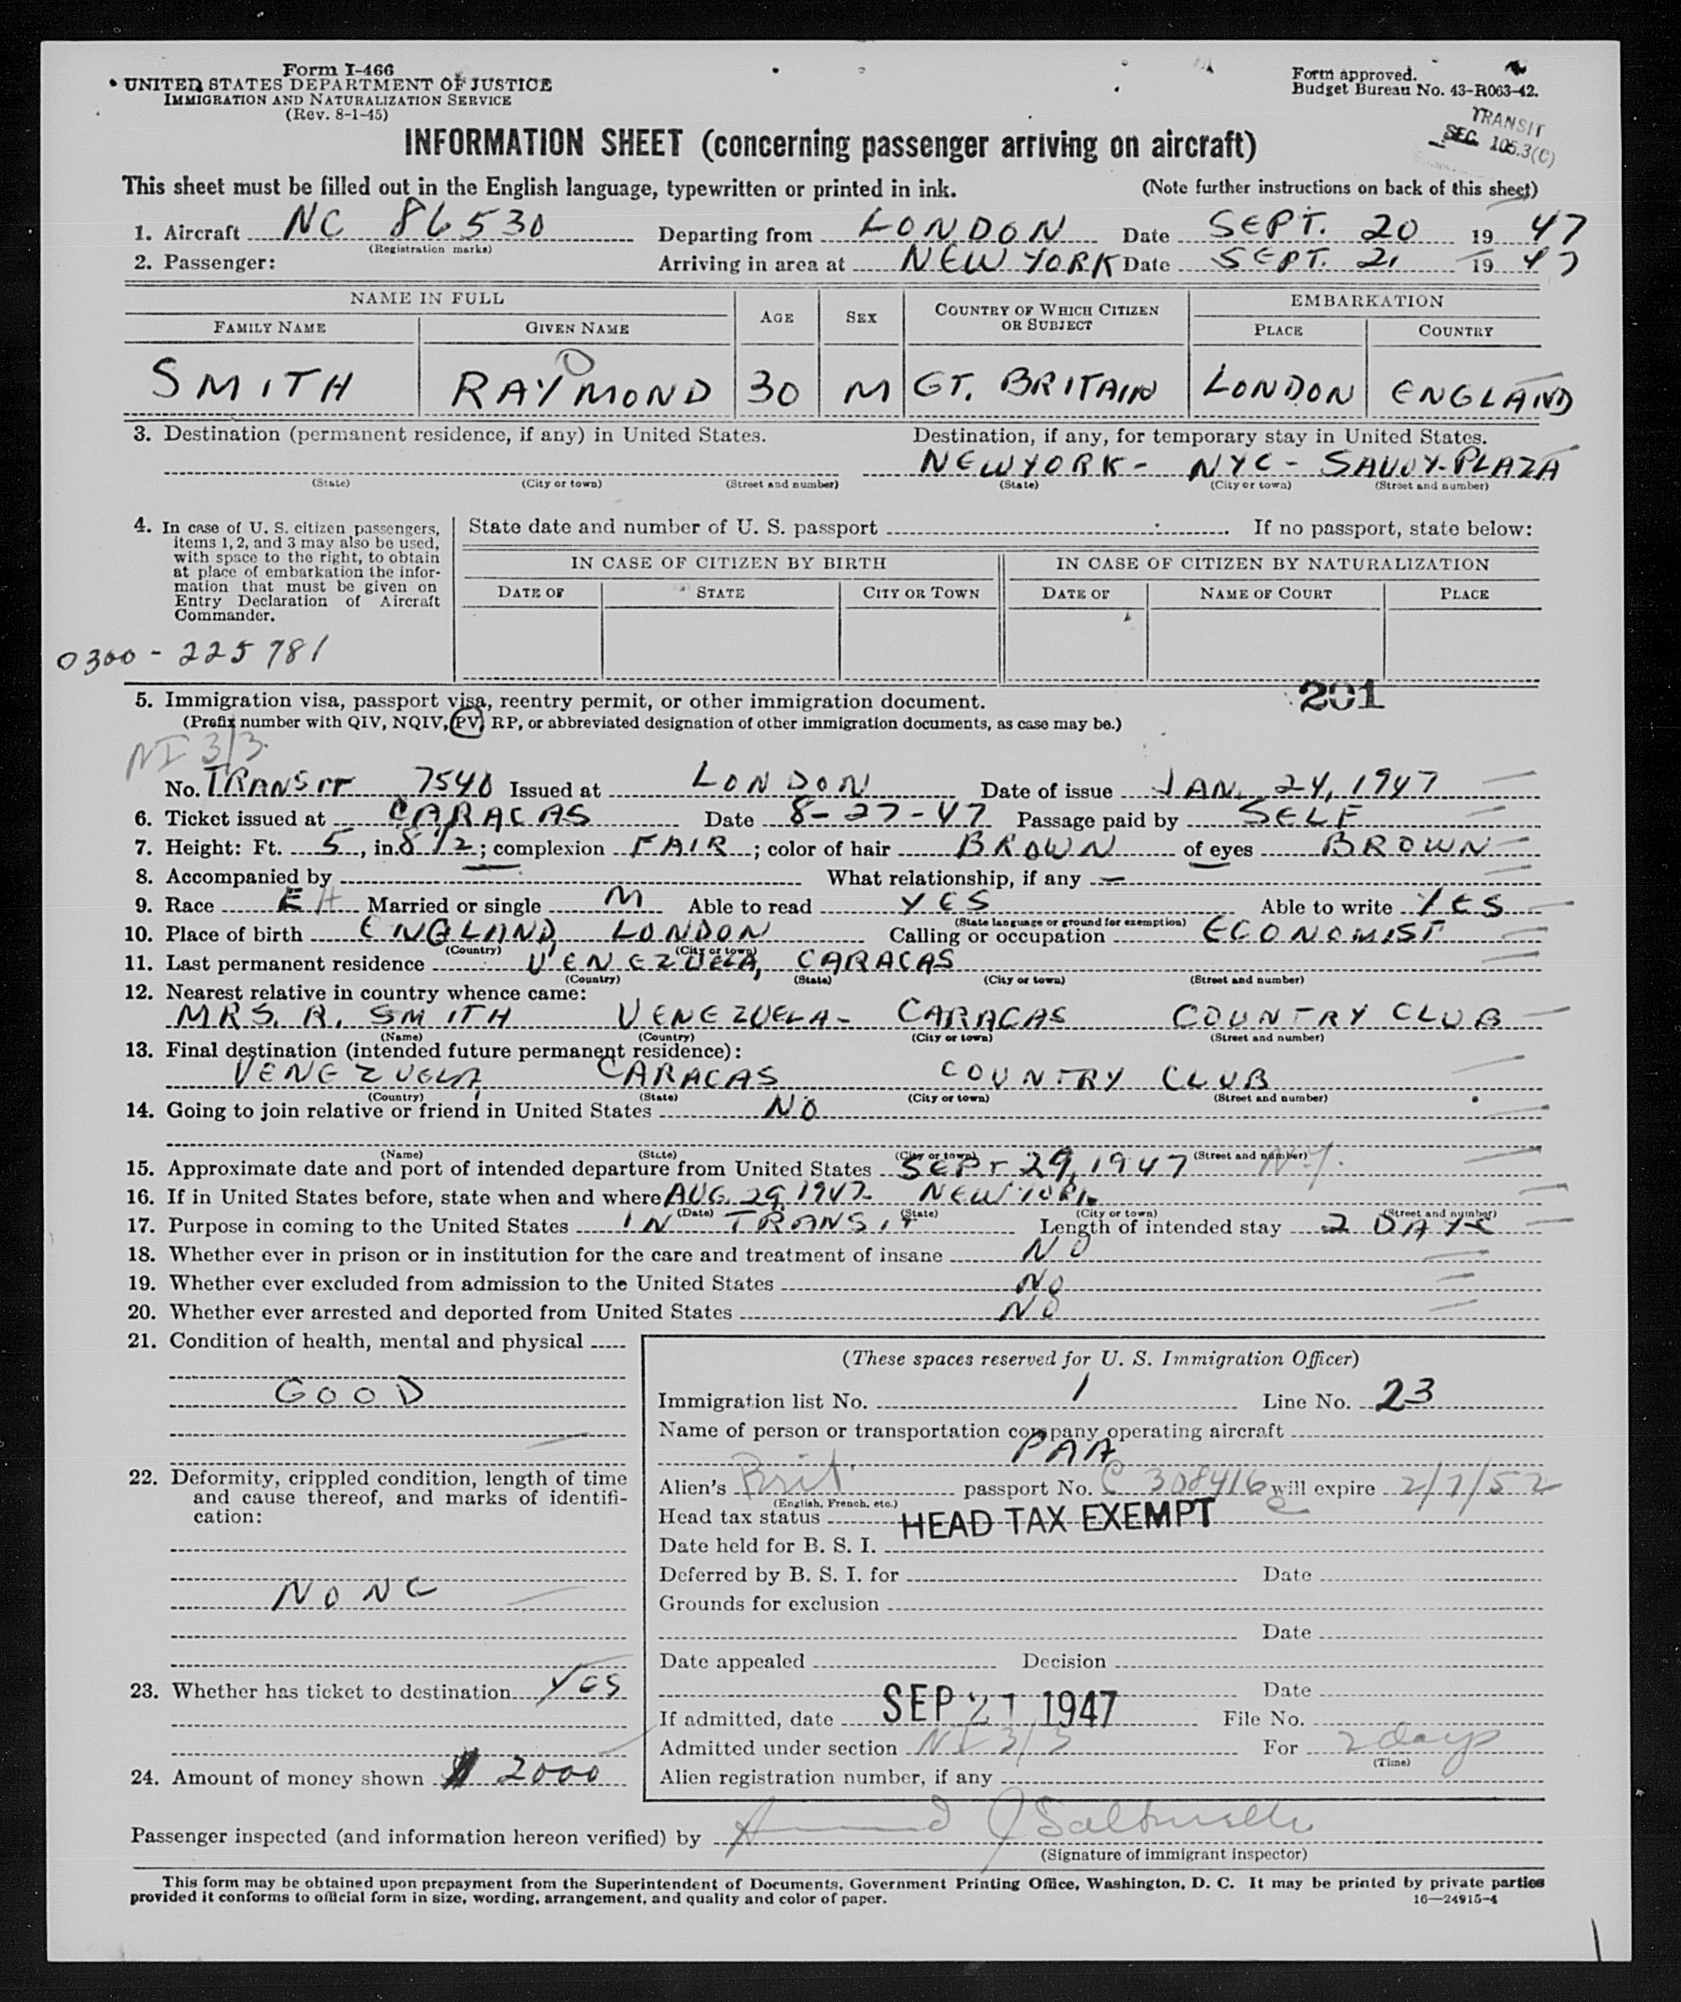 Form I-466
UNITED STATES DEPARTMENT OF JUSTICE
IMMIGRATION AND NATURALIZATION SERVICE
(Rev. 8-1-45)
Form approved.
Budget Bureau No. 43-R063-42.
TRANSIT
SEC. 105.3(C)
INFORMATION SHEET (concerning passenger arriving on aircraft)
This sheet must be filled out in the English language, typewritten or printed in ink. (Note further instructions on back of this sheet)
1. Aircraft NC 86530 Departing from LONDON Date SEPT. 20 19 47
(Registration marks)
2. Passenger: Arriving in area at NEW YORK Date SEPT. 21 19 47
NAME IN FULL EMBARKATION
FAMILY NAME GIVEN NAME AGE SEX COUNTRY OF WHICH CITIZEN OR SUBJECT PLACE COUNTRY
SMITH RAYMOND 30 M GT. BRITAIN LONDON ENGLAND
3. Destination (permanent residence, if any) in United States. Destination, if any, for temporary stay in United States.
NEWYORK - NYC - SAVOY-PLAZA
(State) (City or town) (Street and number) (State) (City or town) (Street and number)
4. In case of U. S. citizen passengers, items 1, 2, and 3 may also be used, with space to the right, to obtain at place of embarkation the information that must be given on Entry Declaration of Aircraft Commander.
State date and number of U. S. passport If no passport, state below:
IN CASE OF CITIZEN BY BIRTH IN CASE OF CITIZEN BY NATURALIZATION
DATE OF STATE CITY OR TOWN DATE OF NAME OF COURT PLACE
0300 - 225781
201
5. Immigration visa, passport visa, reentry permit, or other immigration document.
(Prefix number with QIV, NQIV, PV, RP, or abbreviated designation of other immigration documents, as case may be.)
NI 3/3
No. TRANSIT 7540 Issued at LONDON Date of issue JAN. 24, 1947
6. Ticket issued at CARACAS Date 8-27-47 Passage paid by SELF
7. Height: Ft. 5, in. 8 1/2; complexion FAIR; color of hair BROWN of eyes BROWN
8. Accompanied by — What relationship, if any —
9. Race Married or single M Able to read YES Able to write YES
(State language or ground for exemption)
10. Place of birth ENGLAND, LONDON Calling or occupation ECONOMIST
(Country) (City or town)
11. Last permanent residence VENEZUELA, CARACAS
(Country) (State) (City or town) (Street and number)
12. Nearest relative in country whence came:
MRS. R. SMITH VENEZUELA - CARACAS COUNTRY CLUB
(Name) (Country) (City or town) (Street and number)
13. Final destination (intended future permanent residence):
VENEZUELA, CARACAS COUNTRY CLUB
(Country) (State) (City or town) (Street and number)
14. Going to join relative or friend in United States NO
(Name) (State) (City or town) (Street and number)
15. Approximate date and port of intended departure from United States SEPT 29, 1947 N.Y.
16. If in United States before, state when and where AUG. 29 1947 NEW YORK
(Date) (State) (City or town) (Street and number)
17. Purpose in coming to the United States IN TRANSIT Length of intended stay 2 DAYS
18. Whether ever in prison or in institution for the care and treatment of insane NO
19. Whether ever excluded from admission to the United States NO
20. Whether ever arrested and deported from United States NO
21. Condition of health, mental and physical
GOOD
22. Deformity, crippled condition, length of time and cause thereof, and marks of identification:
NONE
23. Whether has ticket to destination YES
24. Amount of money shown $ 2000
(These spaces reserved for U. S. Immigration Officer)
Immigration list No. 1 Line No. 23
Name of person or transportation company operating aircraft
PAA
Alien's Brit. passport No. C 308416 will expire 2/7/52
(English, French, etc.)
Head tax status HEAD TAX EXEMPT
Date held for B. S. I.
Deferred by B. S. I. for Date
Grounds for exclusion
Date
Date appealed Decision
Date
If admitted, date SEP 21 1947 File No.
Admitted under section NI 3/3 For 2 days
(Time)
Alien registration number, if any
Passenger inspected (and information hereon verified) by
(Signature of immigrant inspector)
This form may be obtained upon prepayment from the Superintendent of Documents, Government Printing Office, Washington, D. C. It may be printed by private parties
provided it conforms to official form in size, wording, arrangement, and quality and color of paper. 16—24915-4